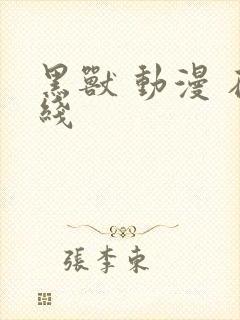 黑獸 動漫
綫
張李東